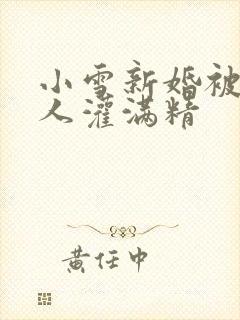 小雪新婚被
人灌满精
黄任中